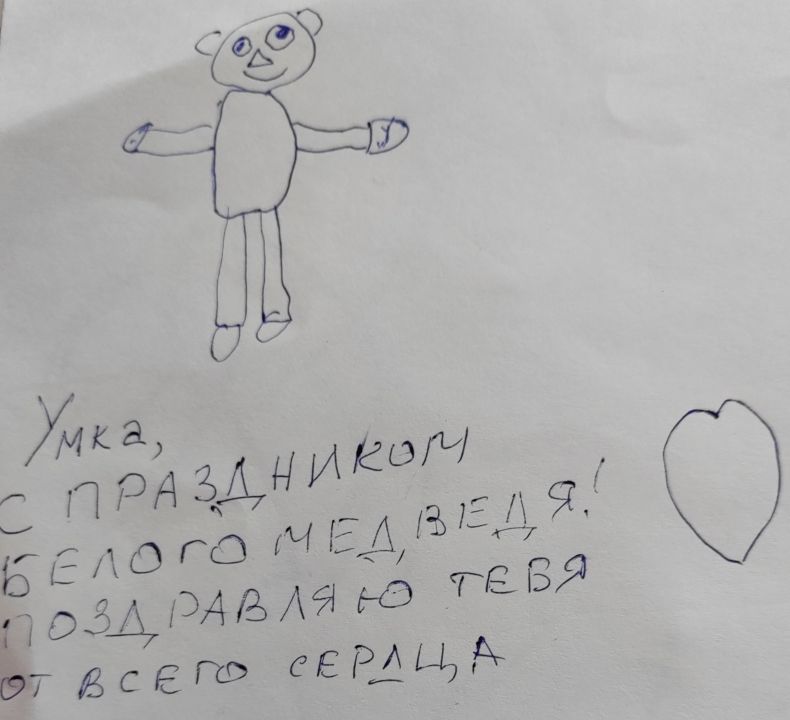 Умка,
С ПРАЗДНИКОМ
БЕЛОГО МЕДВЕДЯ!
ПОЗДРАВЛЯЮ ТЕБЯ
ОТ ВСЕГО СЕРДЦА